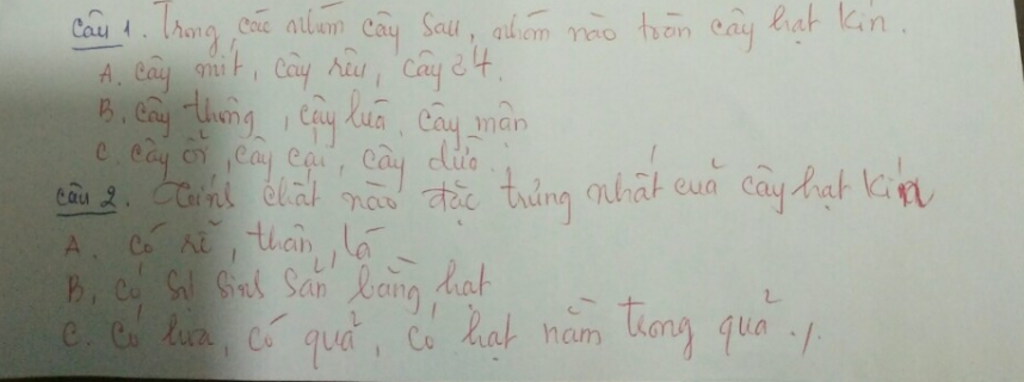 Câu 1. Trong các nhóm cây sau, nhóm nào toàn cây hạt kín.
A. cây mít, cây rêu, cây ớt.
B. cây thông, cây lúa, cây mận
C. cây ổi, cây cải, cây dừa.
Câu 2. Tính chất nào đặc trưng nhất của cây hạt kín
A. có rễ, thân, lá
B. có sự sinh sản bằng hạt
C. có hoa, có quả, có hạt nằm trong quả ./.